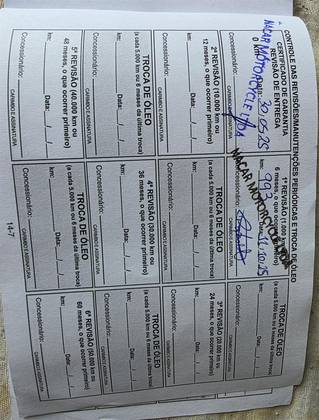 CONTROLE DAS REVISÕES/MANUTENÇÕES PERIÓDICAS E TROCA DE ÓLEO
CERTIFICADO DE GARANTIA
REVISÃO DE ENTREGA
0 km
Data: 30.05.25
NACAR MOTORCYCLE LTDA
Concessionário:
CARIMBO E ASSINATURA
1ª REVISÃO (1.000 km ou
6 meses, o que ocorrer primeiro)
km: 993
Data: 11.10.25
NACAR MOTORCYCLE LTDA
Concessionário:
CARIMBO E ASSINATURA
TROCA DE ÓLEO
(a cada 5.000 km ou 6 meses da última troca)
km:
Data: / /
Concessionário:
CARIMBO E ASSINATURA
2ª REVISÃO (10.000 km ou
12 meses, o que ocorrer primeiro)
km:
Data: / /
Concessionário:
CARIMBO E ASSINATURA
TROCA DE ÓLEO
(a cada 5.000 km ou 6 meses da última troca)
km:
Data: / /
Concessionário:
CARIMBO E ASSINATURA
3ª REVISÃO (20.000 km ou
24 meses, o que ocorrer primeiro)
km:
Data: / /
Concessionário:
CARIMBO E ASSINATURA
TROCA DE ÓLEO
(a cada 5.000 km ou 6 meses da última troca)
km:
Data: / /
Concessionário:
CARIMBO E ASSINATURA
4ª REVISÃO (30.000 km ou
36 meses, o que ocorrer primeiro)
km:
Data: / /
Concessionário:
CARIMBO E ASSINATURA
TROCA DE ÓLEO
(a cada 5.000 km ou 6 meses da última troca)
km:
Data: / /
Concessionário:
CARIMBO E ASSINATURA
5ª REVISÃO (40.000 km ou
48 meses, o que ocorrer primeiro)
km:
Data: / /
Concessionário:
CARIMBO E ASSINATURA
TROCA DE ÓLEO
(a cada 5.000 km ou 6 meses da última troca)
km:
Data: / /
Concessionário:
CARIMBO E ASSINATURA
6ª REVISÃO (50.000 km ou
60 meses, o que ocorrer primeiro)
km:
Data: / /
Concessionário:
CARIMBO E ASSINATURA
14-7